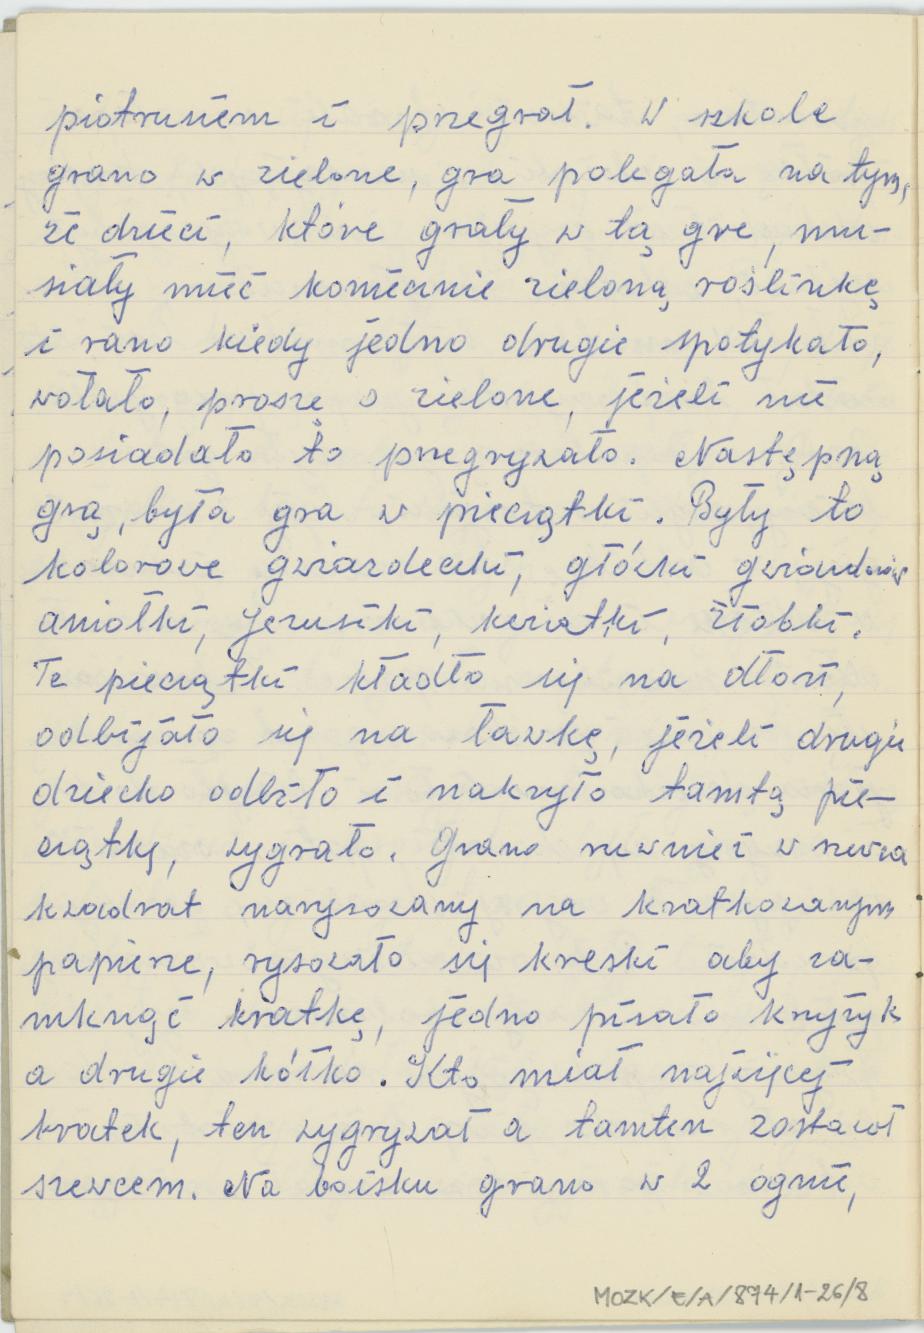 piotrusiem i przegrał. W szkole
grano w zielone, gra polegała na tym,
że dzieci, które grały w tą grę, mu-
siały mieć koniecznie zieloną roślinkę
i rano kiedy jedno drugie spotykało,
wołało, proszę o zielone, jeżeli nie
posiadało to przegrywało. Następną
grą, była gra w pieciątki. Były to
kolorowe gwiazdeczki, główki
aniołki, Jezusiki, kwiatki, żłobki.
Te pieciątki kładło się na dłoń,
odbijało się na ławkę, jeżeli drugie
dziecko odbiło i nakryło tamtą pie-
ciątkę, wygrało. Grano również w szewca
kwadrat narysowany na kratkowanym
papierze, rysowało się kreski aby za-
mknąć kratkę, jedno pisało krzyżyk
a drugie kółko. Kto miał najwięcej
kratek, ten wygrywał a tamten został
szewcem. Na boisku grano w 2 ognie,
MOZK/E/A/894/1-26/8